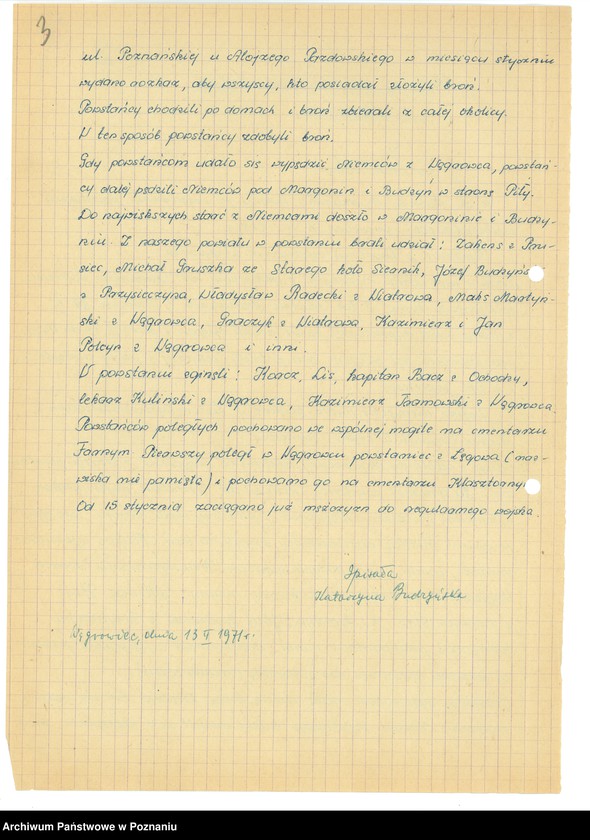 3
ul. Poznańskiej u Alojzego Pazdowskiego w miesiącu styczniu
wydano rozkaz, aby wszyscy, kto posiadał złożyli broń.
Powstańcy chodzili po domach i broń zbierali z całej okolicy.
W ten sposób powstańcy zdobyli broń.
Gdy powstańcom udało się wypędzić Niemców z Wągrowca, powstań-
cy dalej pędzili Niemców pod Margonin i Budzyń w stronę Piły.
Do największych starć z Niemcami doszło w Margoninie i Budzy-
niu. Z naszego powiatu w powstaniu brali udział: Zakens z Pru-
siec, Michał Gruszka ze Starego koło Siernik, Józef Budzyńs
z Przysieczyna, Władysław Radecki z Wiatrowa, Maks Martyń-
ski z Wągrowca, Graczyk z Wiatrowa, Kazimierz i Jan
Potryn z Wągrowca i inni.
W powstaniu zginęli: Koacz, Lis, kapitan Bacz z Ochodzy,
lekarz Kuliński z Wągrowca, Kazimierz Tramowski z Wągrowca.
Powstańców poległych pochowano we wspólnej mogile na cmentarzu
Farnym Pierwszy poległ w Wągrowcu powstaniec z Łęgowa (naz-
wiska nie pamięta) i pochowano go na cmentarzu Klasztorny
Od 15 stycznia zaciągano już mężczyzn do regularnego wojska.
Spisała
Katarzyna Budzyńska
Wągrowiec, dnia 13 II 1971r.
Archiwum Państwowe w Poznaniu